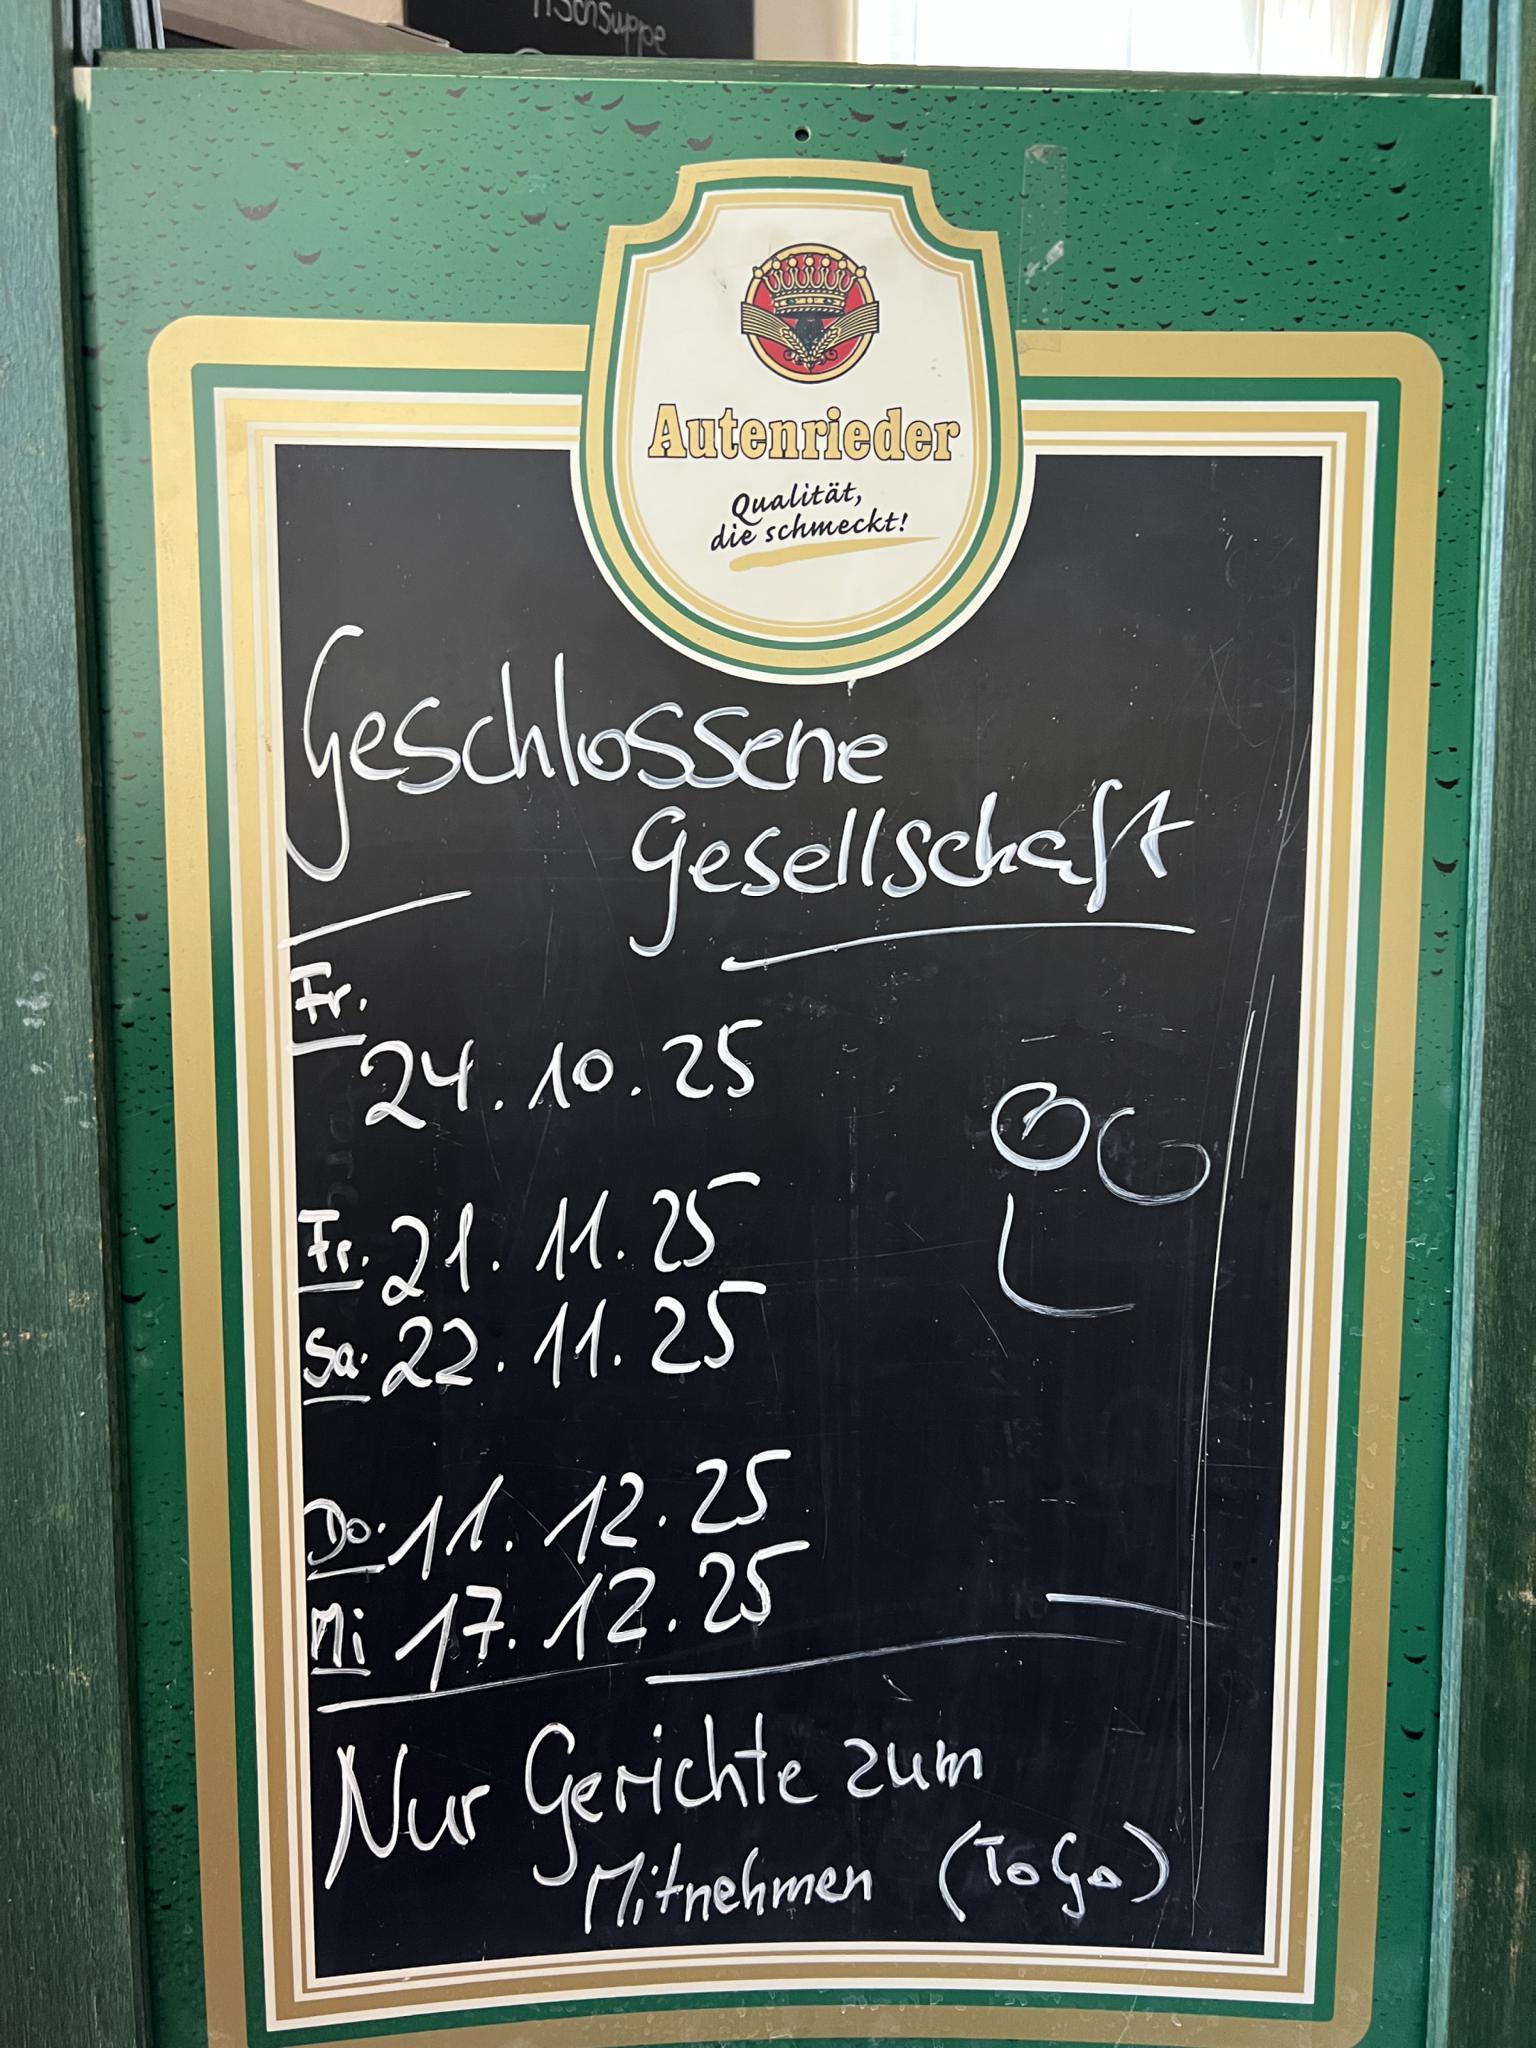 Autenrieder
Qualität,
die schmeckt!
Geschlossene
Gesellschaft
Fr.
24.10.25
Fr. 21.11.25
Sa. 22.11.25
Do. 11.12.25
Mi 17.12.25
Nur Gerichte zum
Mitnehmen (To Go)